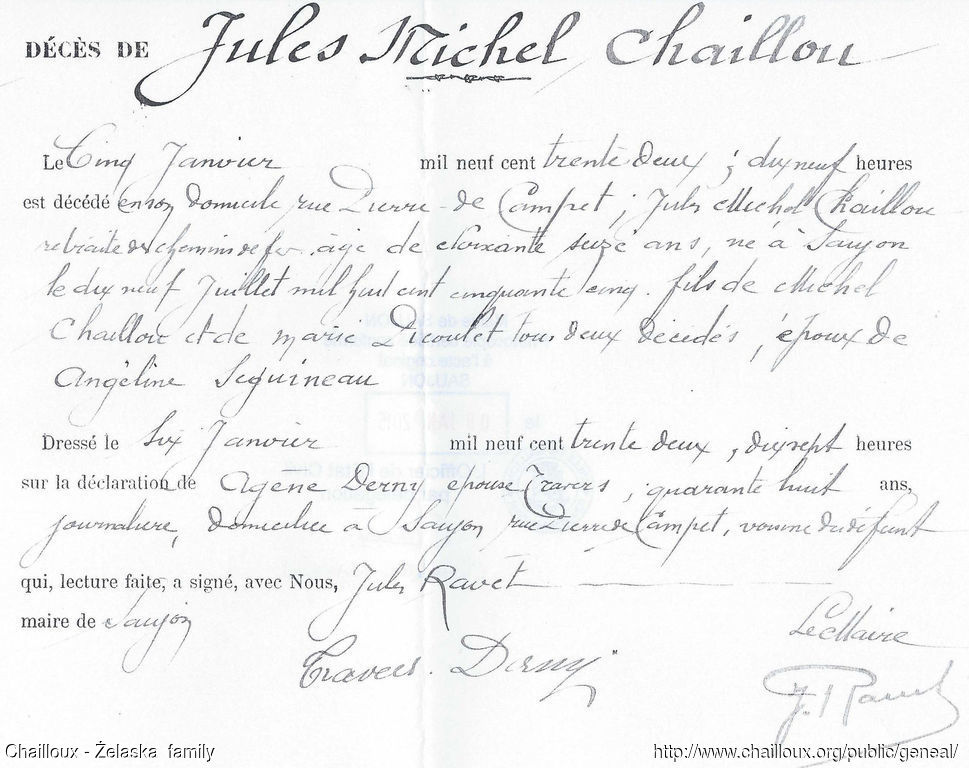 DÉCÈS DE Jules Michel Chaillou
Le Cinq Janvier mil neuf cent trente deux, dix neuf heures
est décédé en son domicile rue Pierre de Campet, Jules Michel Chaillou
retraité des chemins de fer âgé de soixante seize ans, né à Saujon
le dix neuf Juillet mil huit cent cinquante cinq. fils de Michel
Chaillou et de marie Picoulet tous deux décédés, époux de
Angéline Seguineau
Dressé le Six Janvier mil neuf cent trente deux, dix sept heures
sur la déclaration de Agène Derny épouse Travers, quarante huit ans,
journalière, domiciliée à Saujon rue Pierre de Campet, voisine du défunt
qui, lecture faite, a signé, avec Nous, Jules Ravet
maire de Saujon
Le Maire
Travers. Derny
J. Ravet
SAUJON
Chailloux - Želaska family http://www.chailloux.org/public/geneal/